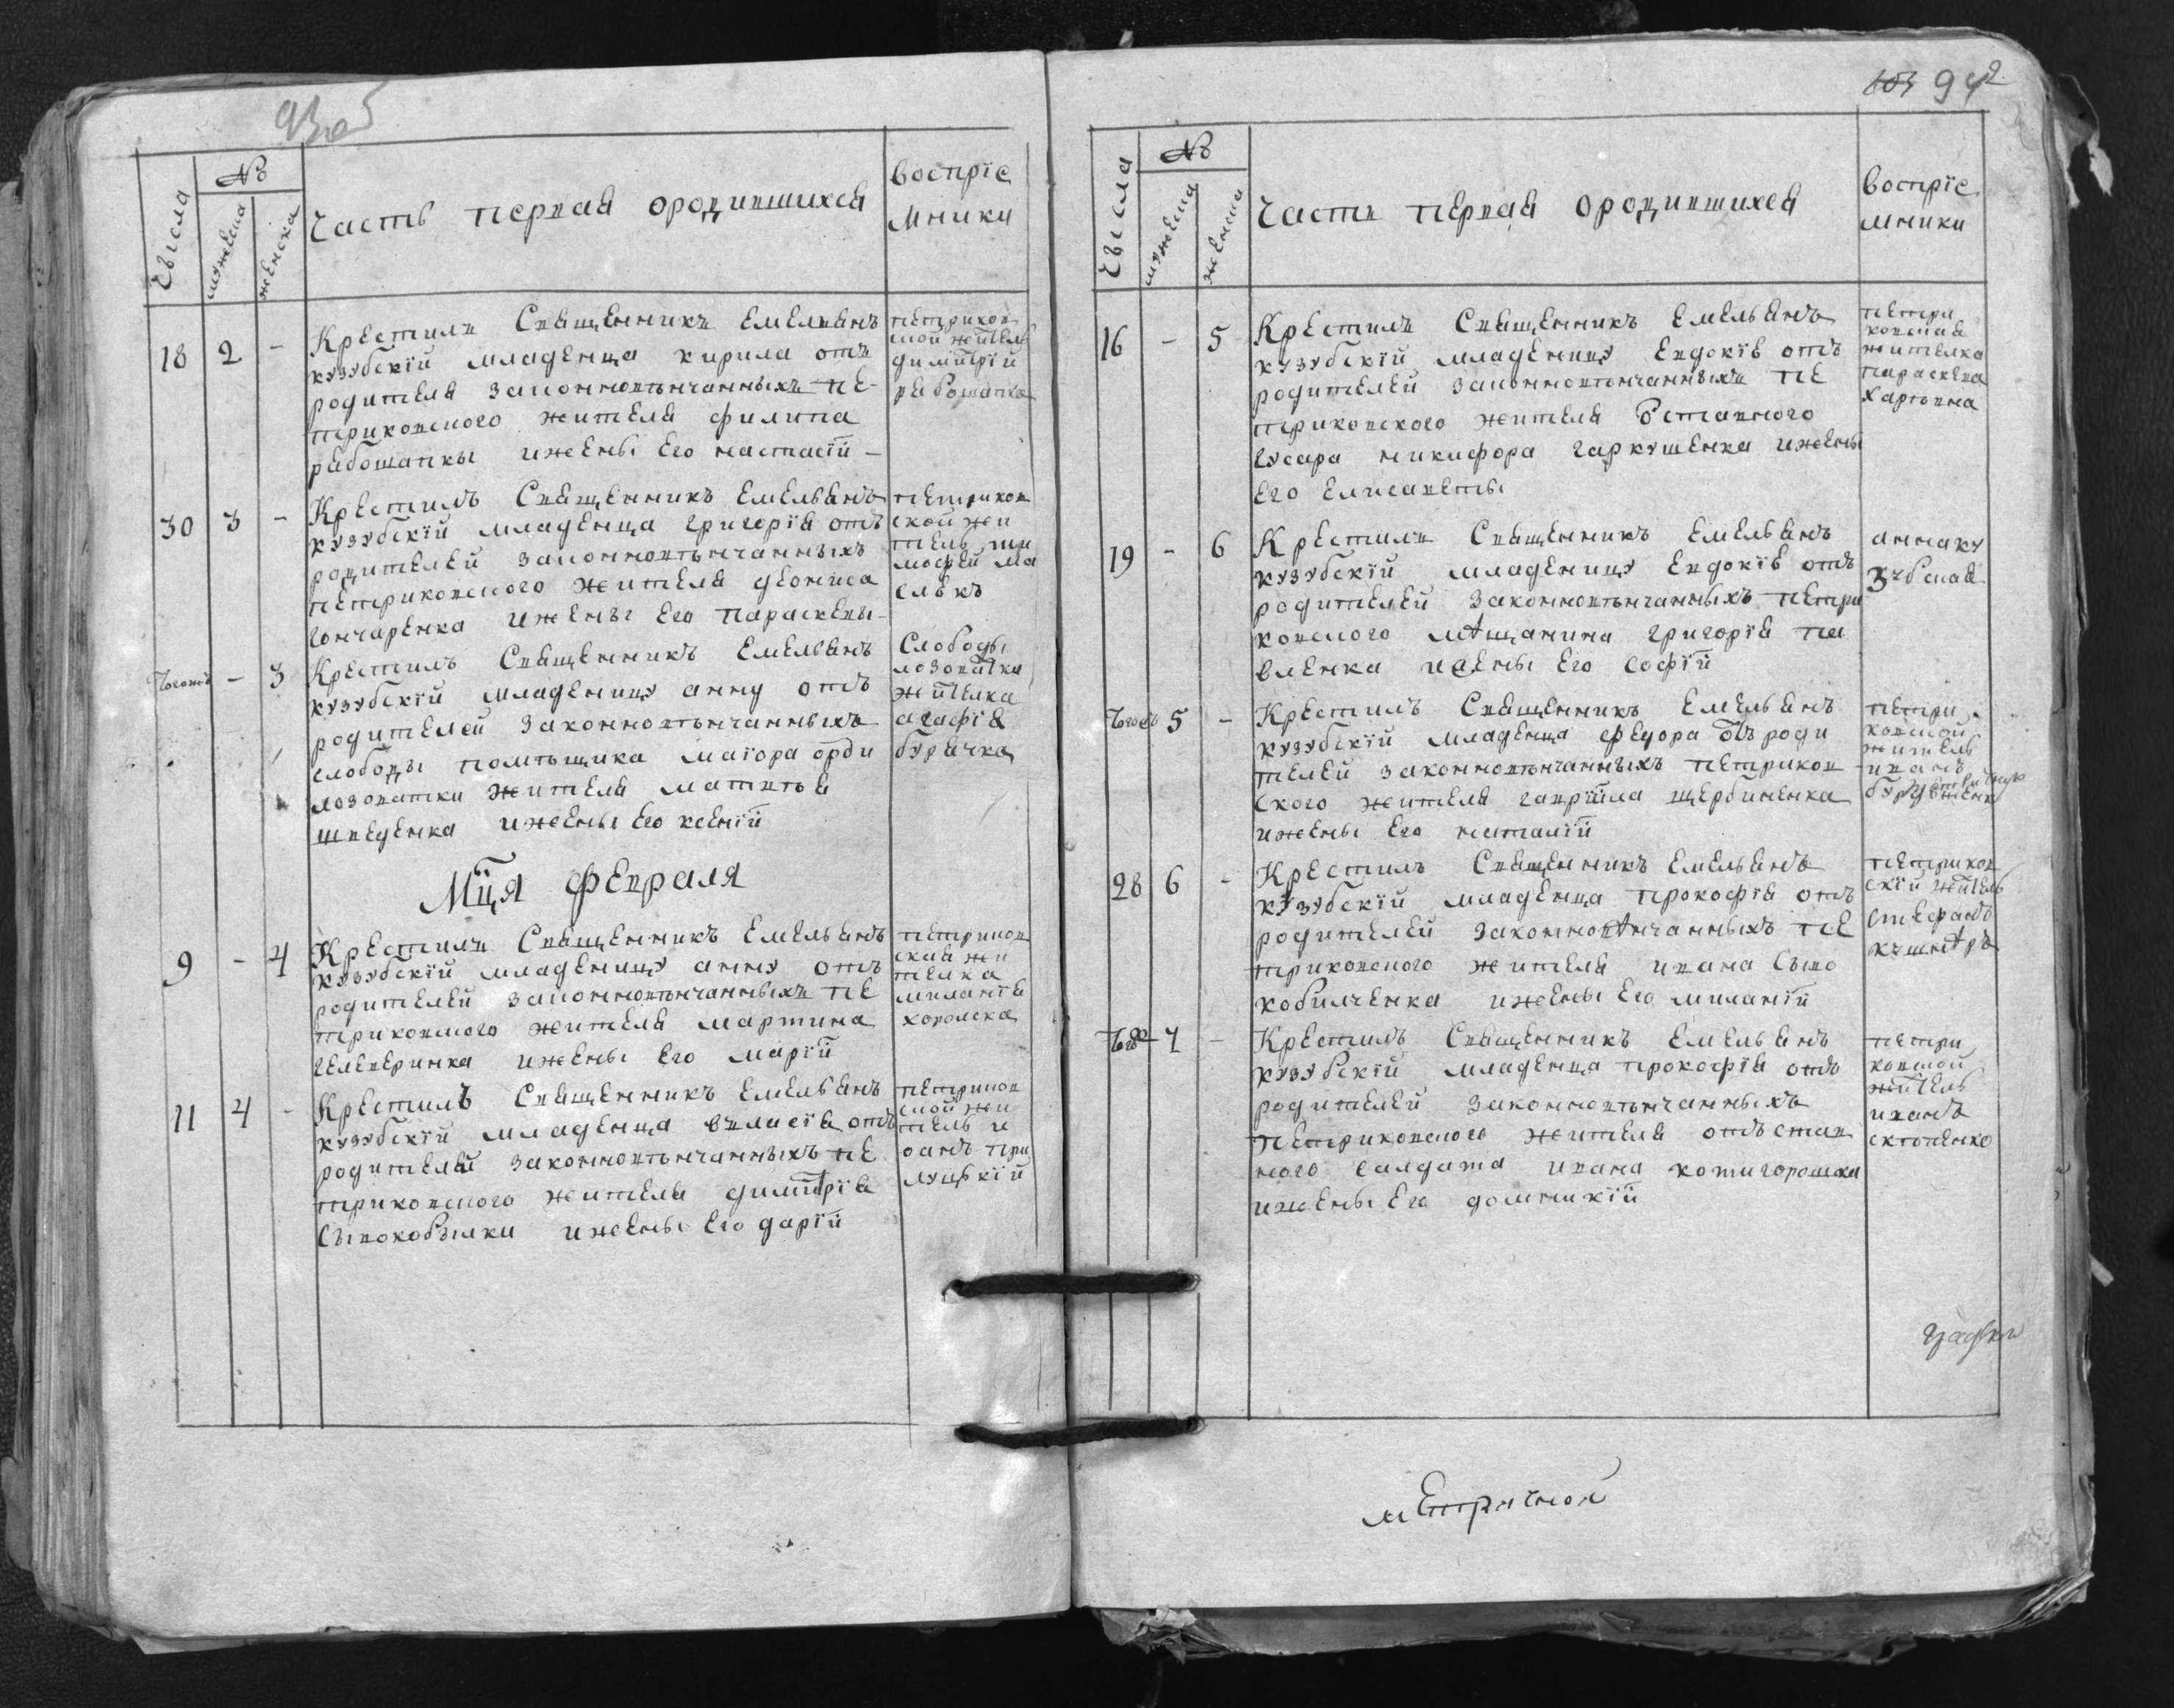 числа
№
мужеска
женска
Часть первая ородившихся
воспріе
мники
18 2 -
Крестилъ Священникъ Емельянъ
кузубскїй младенца кирила отъ
родителя законновѣнчанныхъ пе-
триковского жителя филипа
рябошапки ижены Его настасїй
петриков
ской житель
димитрїй
рябошапка
30 3 -
Крестилъ Священникъ Емельянъ
кузубскїй младенца григорїя отъ
родителей законновѣнчанныхъ
петриковского жителя деониса
гончаренка ижены Его параскевы
петриков
ской жи
тель ти
мофей ма
слѣкъ
- 3
Крестилъ Священникъ Емельянъ
кузубскїй младеницу анну отъ
родителей законновѣнчанныхъ
слободы помѣщика маїора орби
лозоватки жителя матвѣя
шведенка ижены Его ксенїй
Слободы
лозоватки
жителка
агафїя
бурячка
Мц̃я февраля
9 - 4
Крестилъ Священникъ Емельянъ
кузубскїй младеницу анну отъ
родителей законновѣнчанныхъ пе
триковского жителя мартина
ижены Его марїй
петриков
ская жи
телка
миланїя
хоролска
11 4 -
Крестилъ Священникъ Емельянъ
кузубскїй младенца власїя отъ
родителей законновѣнчанныхъ пе
триковского жителя димитрїя
Сывокобылки ижены Его дарїй
петриков
ской жи
тель и
оанъ при
луцкїй
94
числа
№
мужеска
женска
Часть первая ородившихся
воспріе
мники
16 - 5
Крестилъ Священникъ Емельянъ
кузубскїй младеницу Евдокїю отъ
родителей законновѣнчанныхъ пе
триковского жителя Отставного
гусара никифора гаркушенка ижены
его Елисаветы
петри
ковская
жителка
параскева
Харковна
19 - 6
Крестилъ Священникъ Емельянъ
кузубскїй младеницу Евдокїю отъ
родителей законновѣнчанныхъ петри
ковского мѣщанина григорїя па
вленка ижены Его софїй
анна ку
зубская
5 -
Крестилъ Священникъ Емельянъ
кузубскїй младенца федора отъ роди
телей законновѣнчанныхъ петриков
ского жителя гаврїила щербиненка
ижены Его наталїй
петри
ковской
житель
иванъ
28 6 -
Крестилъ Священникъ Емельянъ
кузубскїй младенца прокофїя отъ
родителей законновѣнчанныхъ пе
триковского жителя ивана Сыво
кобилченка ижены Его миланїй
петриков
скїй житель
стефанъ
кушнѣръ
7 -
Крестилъ Священникъ Емельянъ
кузубскїй младенца прокофїя отъ
родителей законновѣнчанныхъ
петриковского жителя отъстав
ного салдата ивана котигорошка
ижены Его домникїй
петри
ковской
житель
иванъ